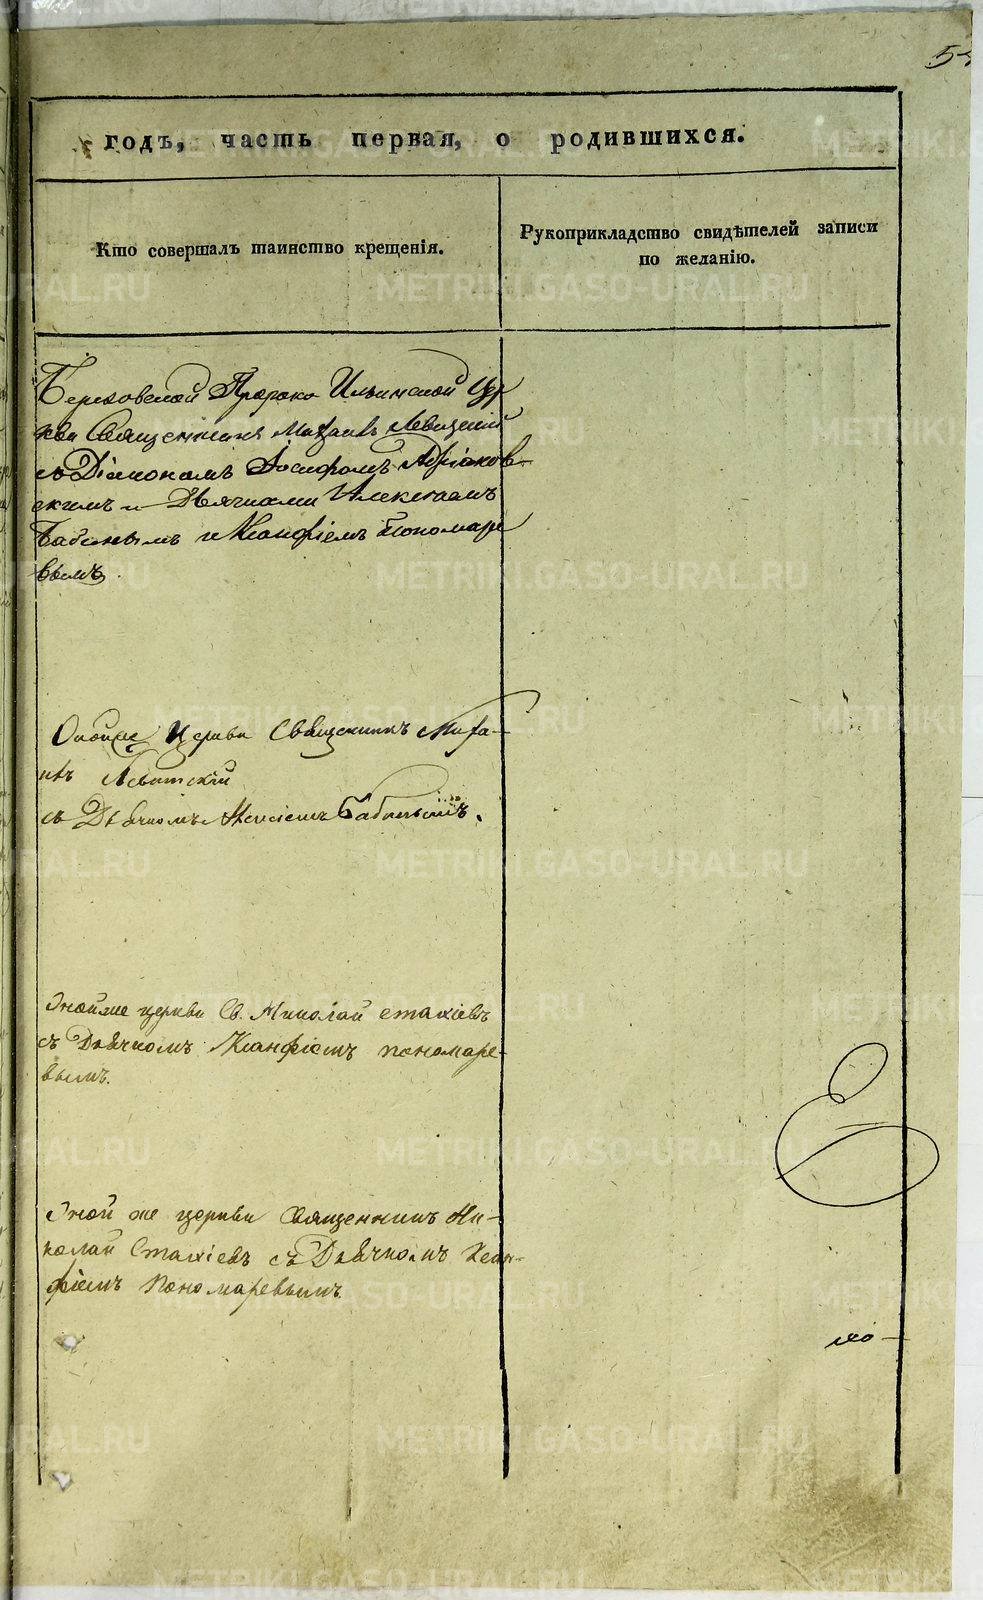 годъ, часть первая, о родившихся.
Кто совершалъ таинство крещенія.
Рукоприкладство свидѣтелей записи
по желанію.
Пророко Ильинской Цер
кви Священникъ Михаилъ Левицкій
съ Діакономъ Іосифомъ
скимъ и Дьячками Алексѣемъ
Бабинымъ и Ксанфіемъ Пономаре
вымъ.
Оной же Церкви Священникъ Миха-
илъ Левитскій
съ Дьячкомъ
Оной же церкви Св. Николай Стахіевъ
съ Дьячкомъ Ксанфіемъ пономаре-
вымъ.
Оной же церкви Священникъ Ни-
колай Стахіевъ съ Дьячкомъ Ксан-
фіемъ Пономаревымъ.
METRIKI.GASO-URAL.RU